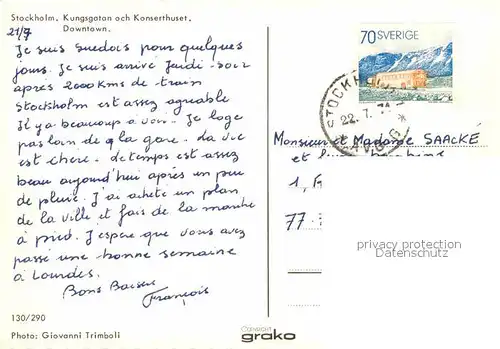 Stockholm, Kungsgatan och Konserthuset.
Downtown.
21/7
Je suis Suedois pour quelques
jours. Je suis arrivé Jeudi soir
après 2000 Kms de train
Stockholm est assez agreable
Il y a beaucoup à voir. Je loge
pas loin de la gare. La vie
est chère. le temps est assez
beau aujourd'hui après un peu
de pluie. J'ai acheté un plan
de la ville et fais de la marche
à pied. J'espere que vous avez
passé une bonne semaine
à Lourdes.
Bons Baisers
François
130/290
Photo: Giovanni Trimboli
70 SVERIGE
STOCKHOLM
22.7.
Monsieur et Madame SAACKÉ
et
1,
77
privacy protection
Datenschutz
Copyright
grako